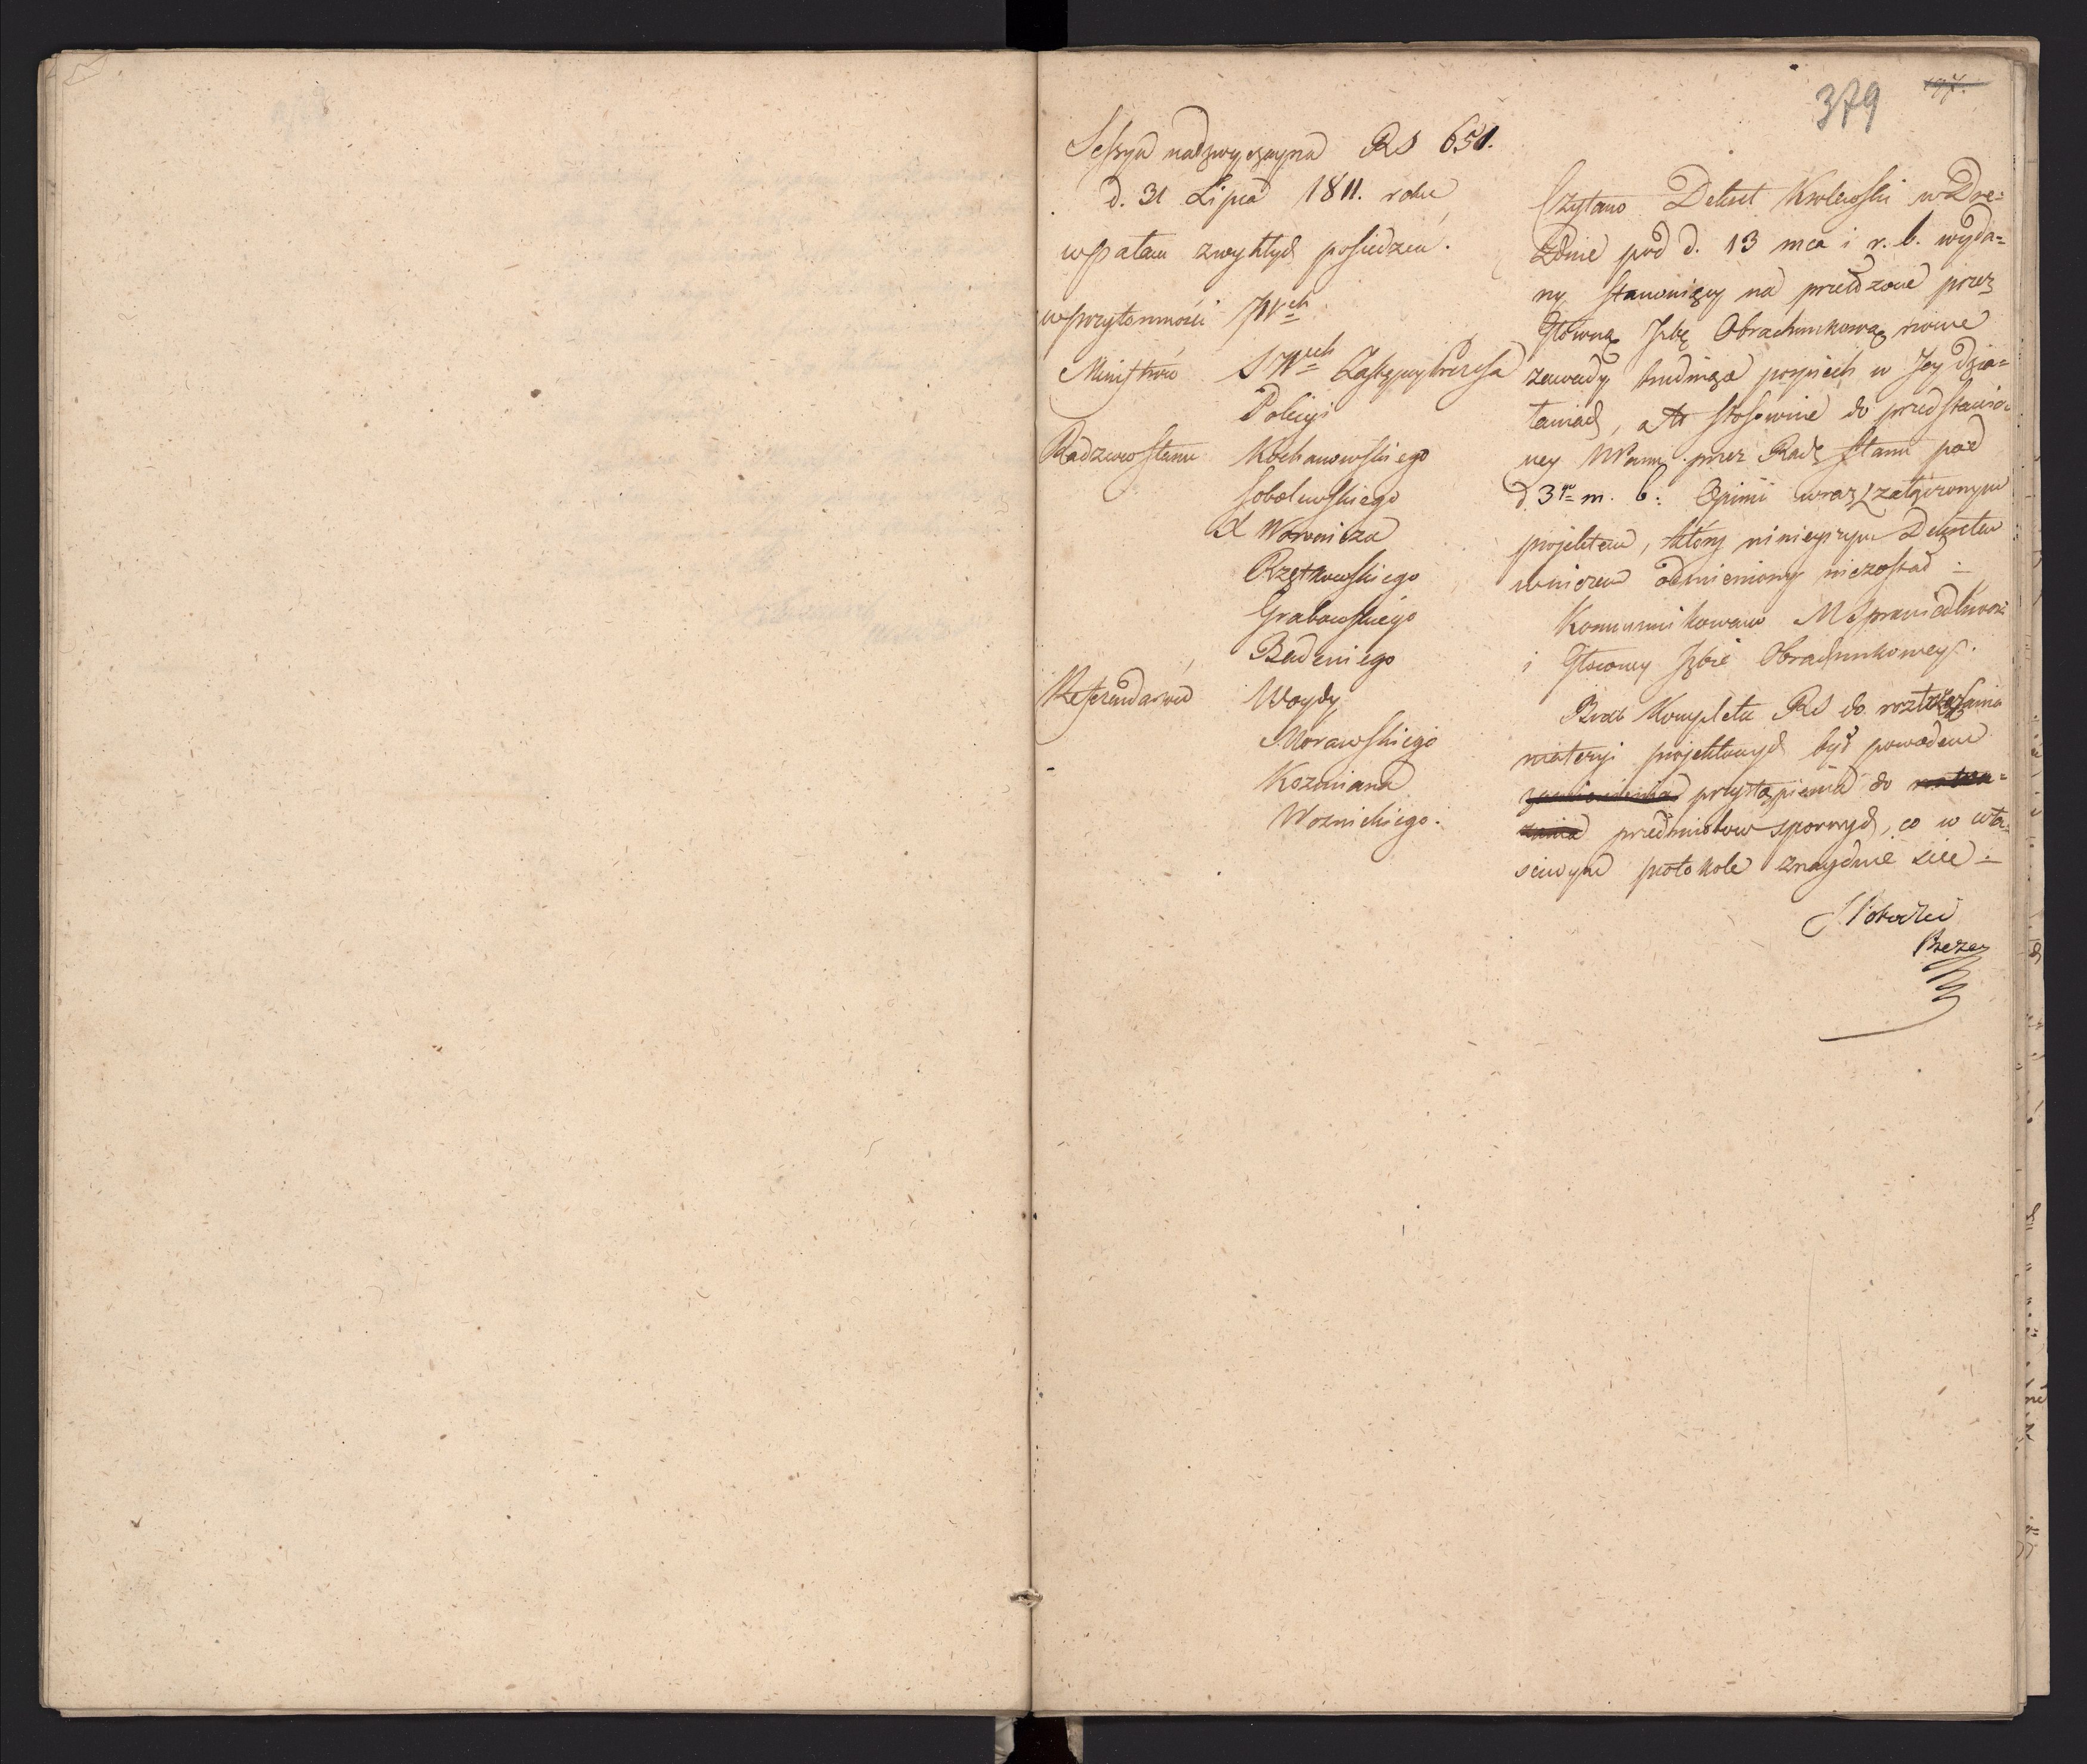 379
197.
Sessya nadzwyczayna RS 651.
d. 31 Lipca 1811. roku
w Pałacu zwykłych posiedzeń.
w przytomności JW<sup>ch</sup>
Ministrów JW<sup>ch</sup> Zastępcy Prezesa
Policyi
Radzców Stanu Kochanowskiego
Sobolewskiego
X Woronicza
Rzętkowskiego
Grabowskiego
Badeniego
Referendarzów Woydy
Morawskiego
Kozmiana
Woznickiego.
Czytano Dekret Krolewski w Dre=
zdnie pod d. 13 mca i r. b. wyda=
ny, stanowiący na przełożone przez
Główną Izbę Obrachunkową nowe
zawady trudniące pospiech w Jey dzia=
łaniach, a to stosownie do przedstawio-
ney NPanu przez Radę Stanu pod
d. 3 m. b. Opinii wraz z załączonym
projektem, który ninieyszym Dekretem
w niczem odmieniony niezostał.
Kommunikowano M Sprawiedliwosci
i Głowney Izbie Obrachunkowey.
Brak Kompletu RS do roztrząsania
materyi projektowych był powodem
przystąpienia do
przedmiotow spornych, co w wła=
sciwym protokole znayduie się.
S. Potocki
Prezes